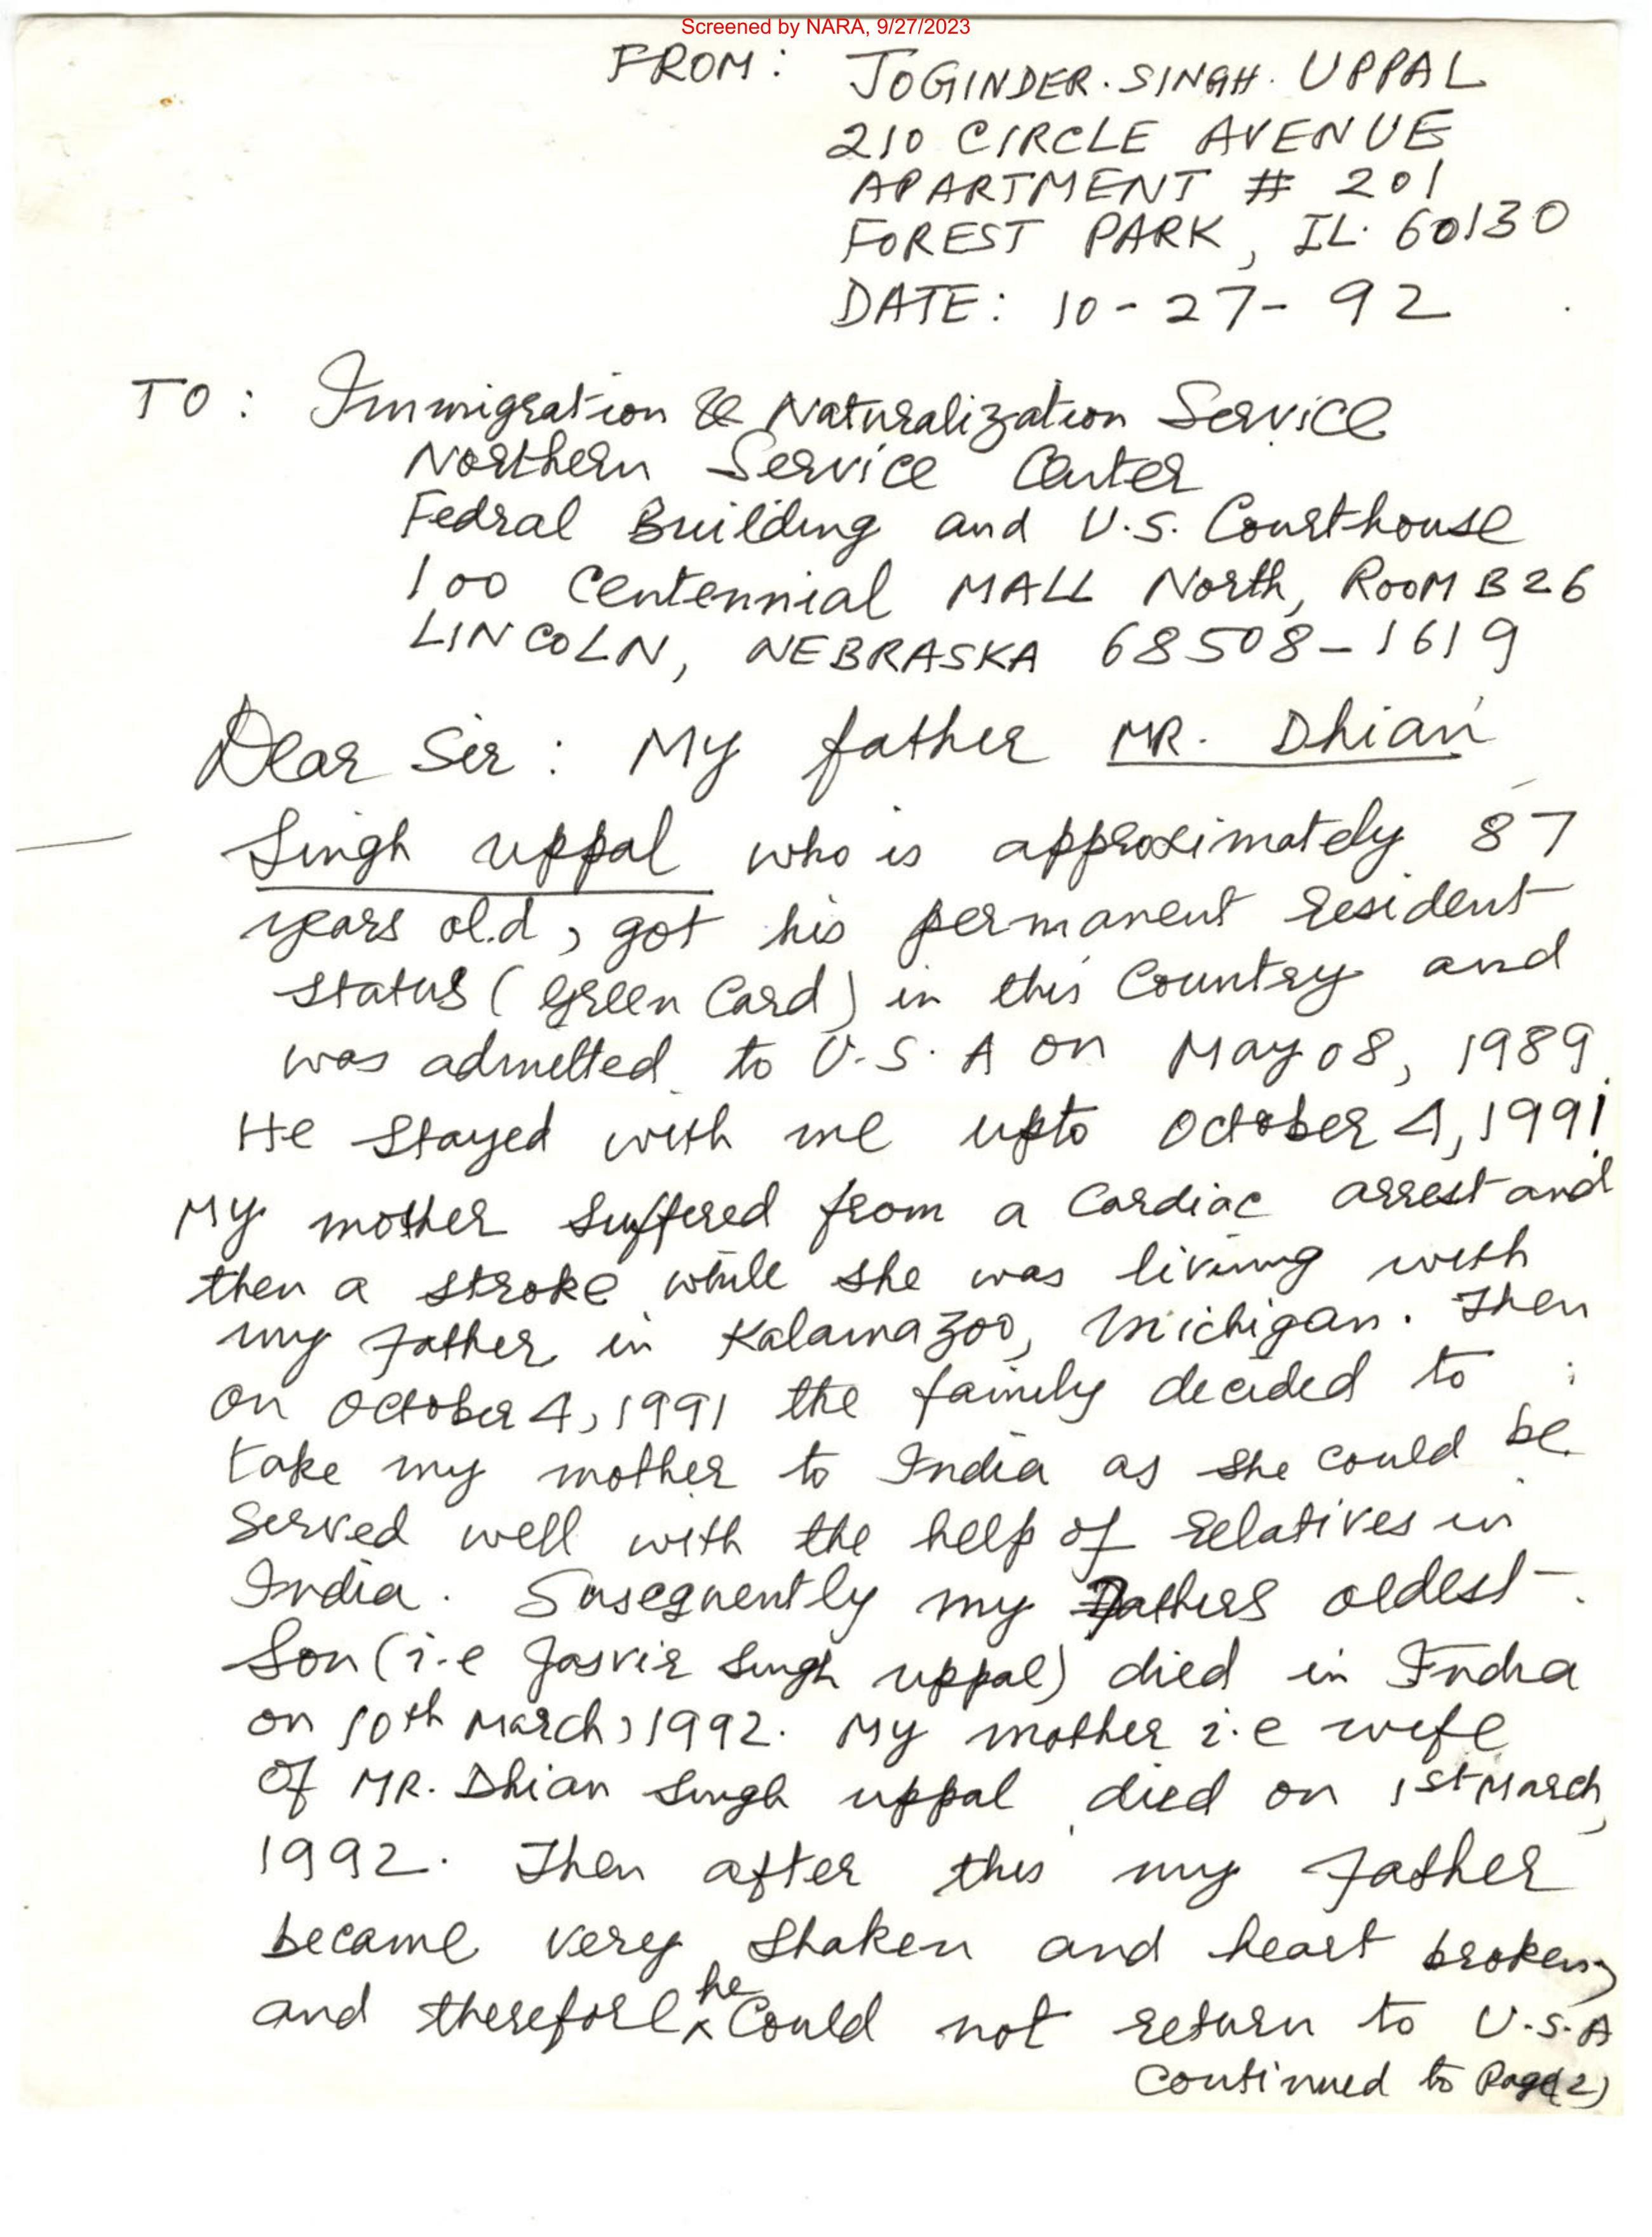 Screened by NARA, 9/27/2023
FROM: JOGINDER. SINGH. UPPAL
210 CIRCLE AVENUE
APARTMENT # 201
FOREST PARK, IL. 60130
DATE: 10-27-92
TO: Immigration & Naturalization Service
Northern Service Center
Fedral Building and U.S. Courthouse
100 Centennial MALL North, ROOM B26
LINCOLN, NEBRASKA 68508-1619
Dear Sir: My father MR. Dhian
Singh uppal who is approximately 87
years old, got his permanent resident
status (Green Card) in this Country and
was admitted to U.S.A on May 08, 1989.
He stayed with me upto October 4, 1991.
My mother suffered from a Cardiac arrest and
then a stroke while she was living with
my father in Kalamazoo, Michigan. Then
on October 4, 1991 the family decided to
take my mother to India as she could be
served well with the help of relatives in
India. Susequently my Fathers oldest
Son (i.e Jasvir Singh uppal) died in India
on 10th March, 1992. My mother i.e wife
of MR. Dhian Singh uppal died on 1st March,
1992. Then after this my Father
became very shaken and heart broken,
and therefore he Could not return to U.S.A
Continued to Page(2)